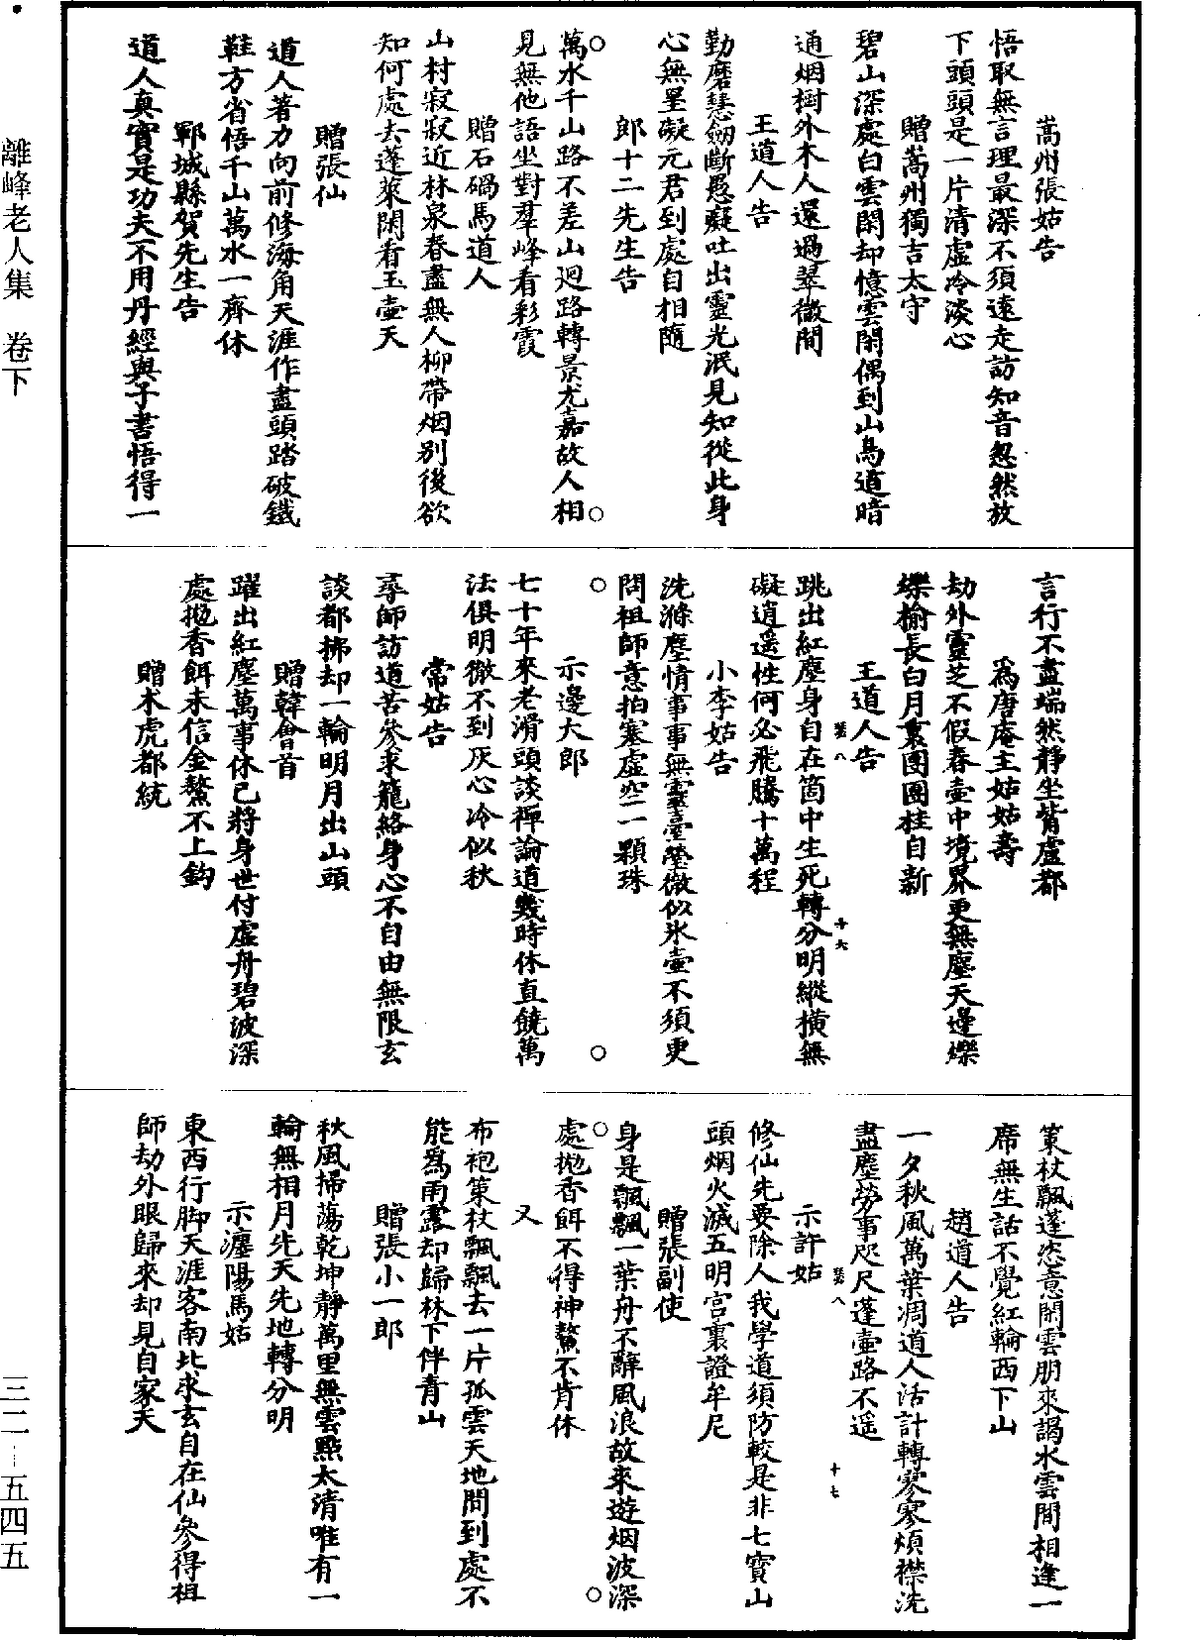 嵩州張姑告
悟取無言理最深不須遠走訪知音忽然放
下頭頭是一片清虛冷淡心
贈嵩州獨吉太守
碧山深處白雲閑却憶雲閑偶到山鳥道暗
通烟樹外木人還過翠微間
王道人告
勤磨慧劒斷愚癡吐出靈光泯見知從此身
心無罣礙元君到處自相隨
郎十二先生告
萬水千山路不差山迴路轉景尤嘉故人相
見無他語坐對羣峰看彩霞
贈石碢馬道人
山村寂寂近林泉春盡無人柳帶烟別後欲
知何處去蓬萊閑看玉壺天
贈張仙
道人著力向前修海角天涯作盡頭踏破鐵
鞋方省悟千山萬水一齊休
鄆城縣賀先生告
道人真實是功夫不用丹經與子書悟得一
言行不盡端然靜坐觜盧都
爲唐庵主姑姑壽
劫外靈芝不假春壺中境界更無塵天邊爍
爍榆長白月裏團團桂自新
王道人告
跳出紅塵身自在箇中生死轉分明縱橫無
礙逍遥性何必飛騰十萬程
小李姑告
洗滌塵情事事無靈臺瑩徹似氷壺不須更
問祖師意拍塞虛空一顆珠
示邊大郎
七十年來老滑頭談禪論道幾時休直饒萬
法俱明徹不到灰心冷似秋
常姑告
尋師訪道苦參求籠絡身心不自由無限玄
談都拂却一輪明月出山頭
贈韓會首
躍出紅塵萬事休已將身世付虛舟碧波深
處拋香餌未信金鰲不上鈎
贈术虎都統
策杖飄蓬恣意閑雲朋來謁水雲間相逢一
席無生話不覺紅輪西下山
趙道人告
一夕秋風萬葉凋道人活計轉寥寥煩襟洗
盡塵勞事咫尺蓬壺路不遥
示許姑
修仙先要除人我學道須防較是非七寶山
頭烟火滅五明宮裏證牟尼
贈張副使
身是飄飄一葉舟不辭風浪故來遊烟波深
處拋香餌不得神鰲不肯休
又
布袍策杖飄飄去一片孤雲天地間到處不
能爲雨露却歸林下伴青山
贈張小一郎
秋風掃蕩乾坤靜萬里無雲點太清唯有一
輪無相月先天先地轉分明
示瀍陽馬姑
東西行脚天涯客南北求玄自在仙參得祖
師劫外眼歸來却見自家天
離峰老人集　卷下
三二—五四五